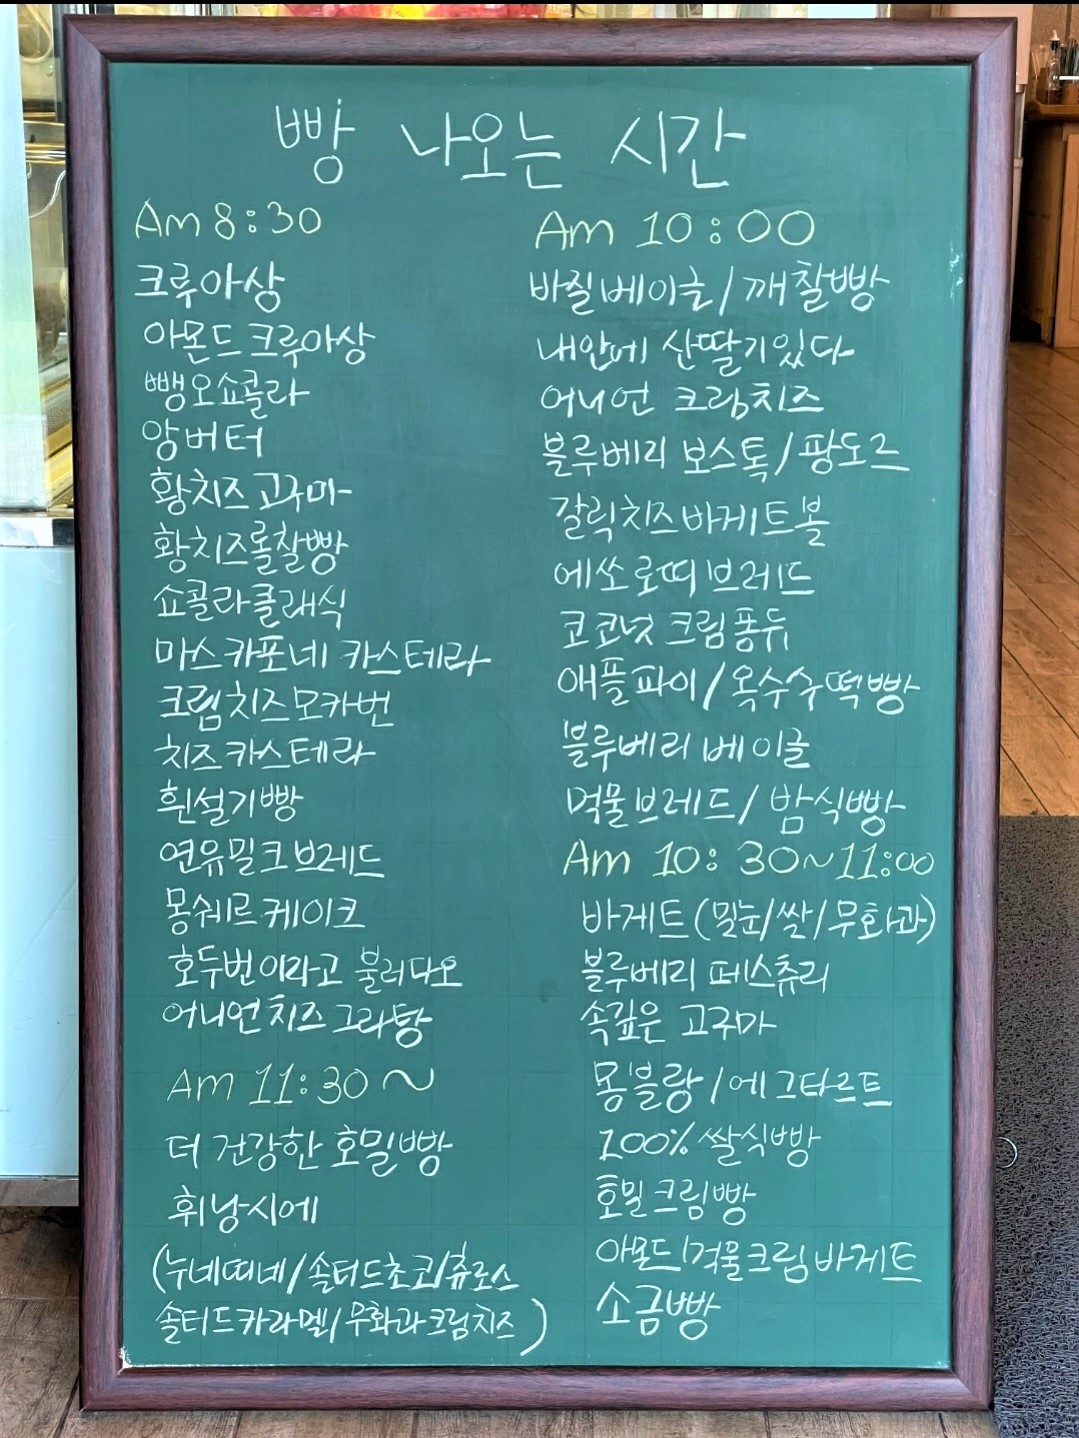 빵 나오는 시간
Am 8:30
크루아상
아몬드 크루아상
뺑오쇼콜라
앙버터
황치즈 고구마
황치즈롤찰빵
쇼콜라클래식
마스카포네 카스테라
크림치즈모카번
치즈카스테라
흰설기빵
연유밀크브레드
몽쉐르케이크
호두번이라고 불러다오
어니언치즈 그라탕
Am 11:30~
더 건강한 호밀빵
휘낭시에
(누네띠네/솔티드초코/츄로스
솔티드카라멜/무화과크림치즈)
Am 10:00
바질베이글/깨찰빵
내안에 산딸기있다
어니언 크림치즈
블루베리 보스톡/팡도르
갈릭치즈바게트볼
에쏘로띠브레드
코코넛크림퐁듀
애플파이/옥수수떡빵
블루베리 베이글
먹물브레드/밤식빵
Am 10:30~11:00
바게트(밀눈/쌀/무화과)
블루베리 페스츄리
속깊은 고구마
몽블랑/에그타르트
100% 쌀식빵
호밀크림빵
아몬드/먹물크림바게트
소금빵